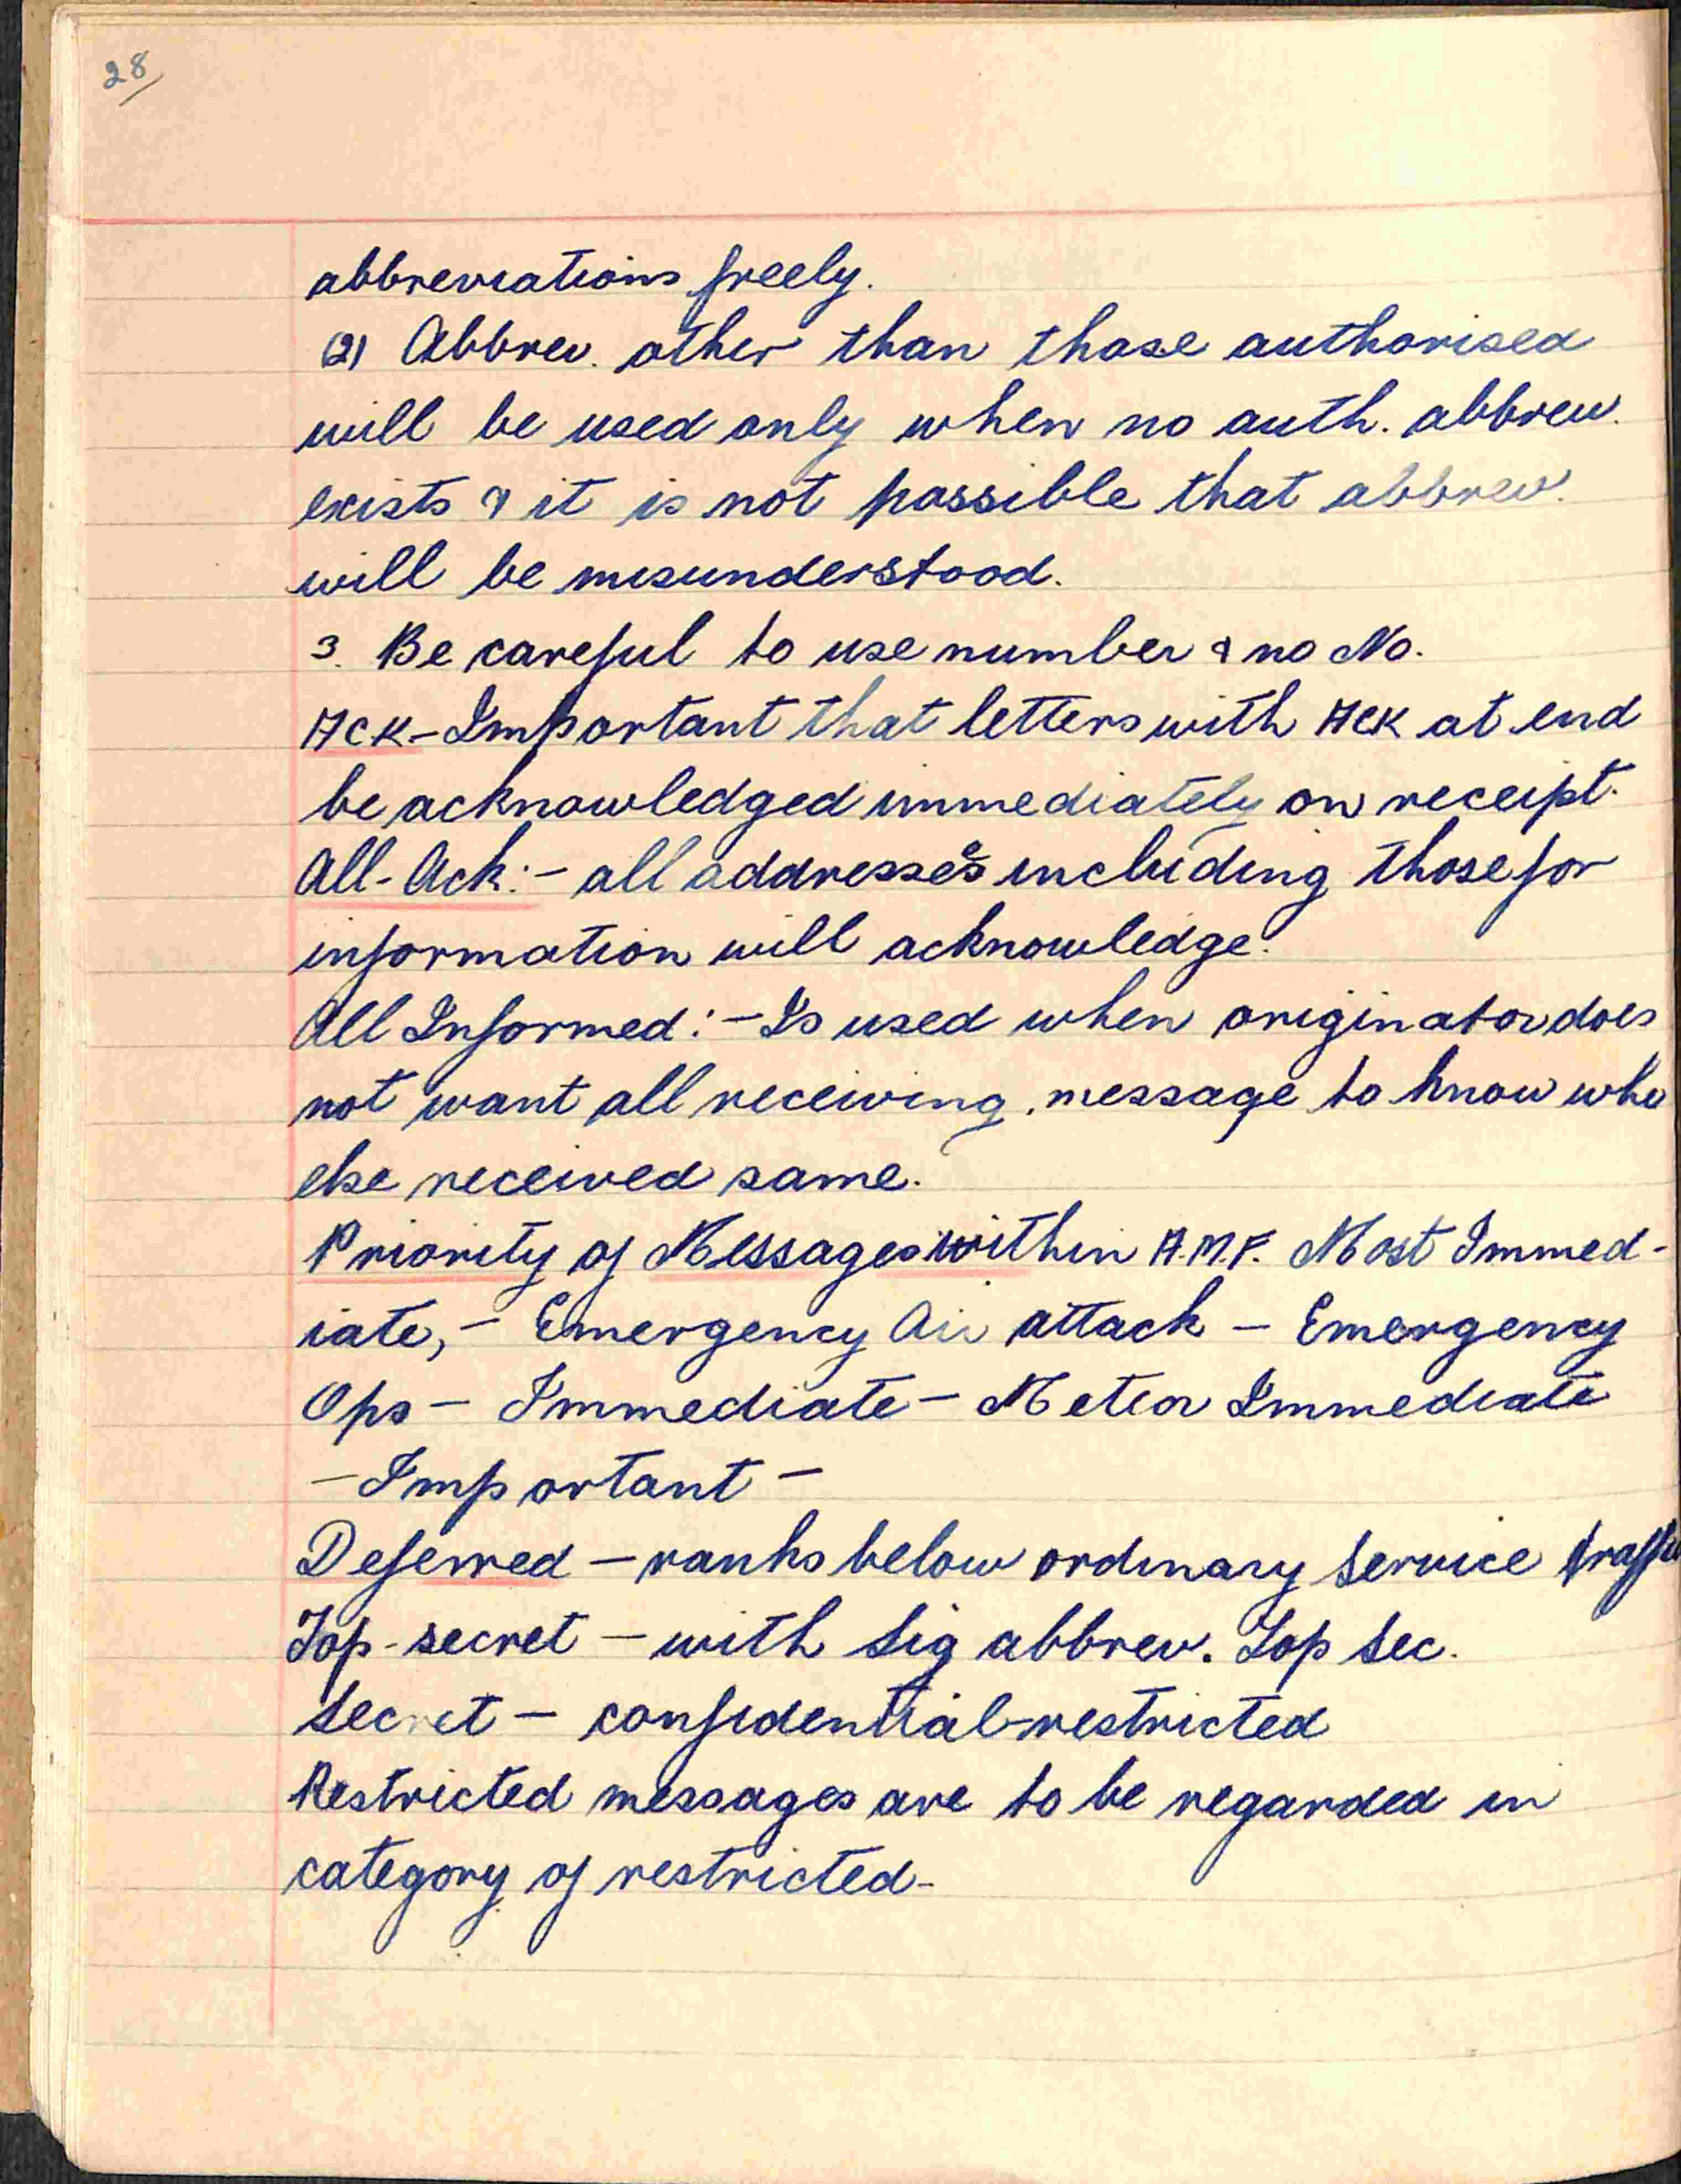 28
abbreviations freely.
(2) Abbrev. other than those authorised
will be used only when no auth. abbrev.
exists & it is not possible that abbrev.
will be misunderstood.
3. Be careful to use number & no No.
ACK - Important that letters with ACK at end
be acknowledged immediately on receipt.
All-Ack:- all addressees including those for
information will acknowledge.
All Informed:- Is used when originator does
not want all receiving message to know who
else received same.
Priority of Messages within A.M.F. Most Immed-
iate, - Emergency Air attack - Emergency
Ops - Immediate - Meteor Immediate
- Important -
Deferred - ranks below ordinary service traffic
Top-secret - with Sig abbrev. Top Sec.
Secret - confidential-restricted
Restricted messages are to be regarded in
category of restricted-